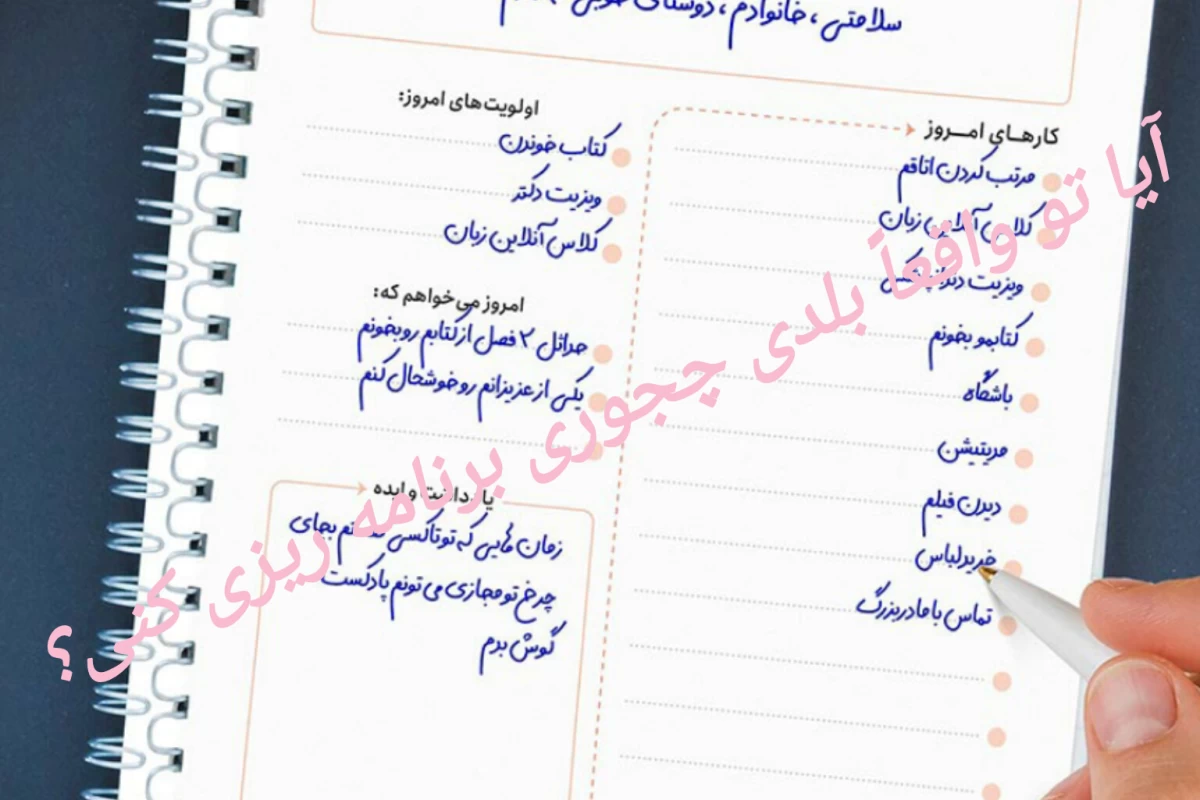 سلامتی ، خانوادم ، دوستای
کارهای امروز
مرتب کردن اتاقم
کلاس آنلاین زبان
ویزیت
کتابمو بخونم
باشگاه
مدیتیشن
دیدن فیلم
خرید لباس
تماس با مادربزرگ
اولویت‌های امروز:
کتاب خوندن
ویزیت دکتر
کلاس آنلاین زبان
امروز می‌خواهم که:
حداقل ۲ فصل از کتابم رو بخونم
یکی از عزیزانم رو خوشحال کنم
یادداشت و ایده
زمان هایی که تو تاکسی بجای
چرخ تو مجازی می تونم پادکست
گوش بدم
آیا تو واقعاً بلدی چجوری برنامه ریزی کنی؟